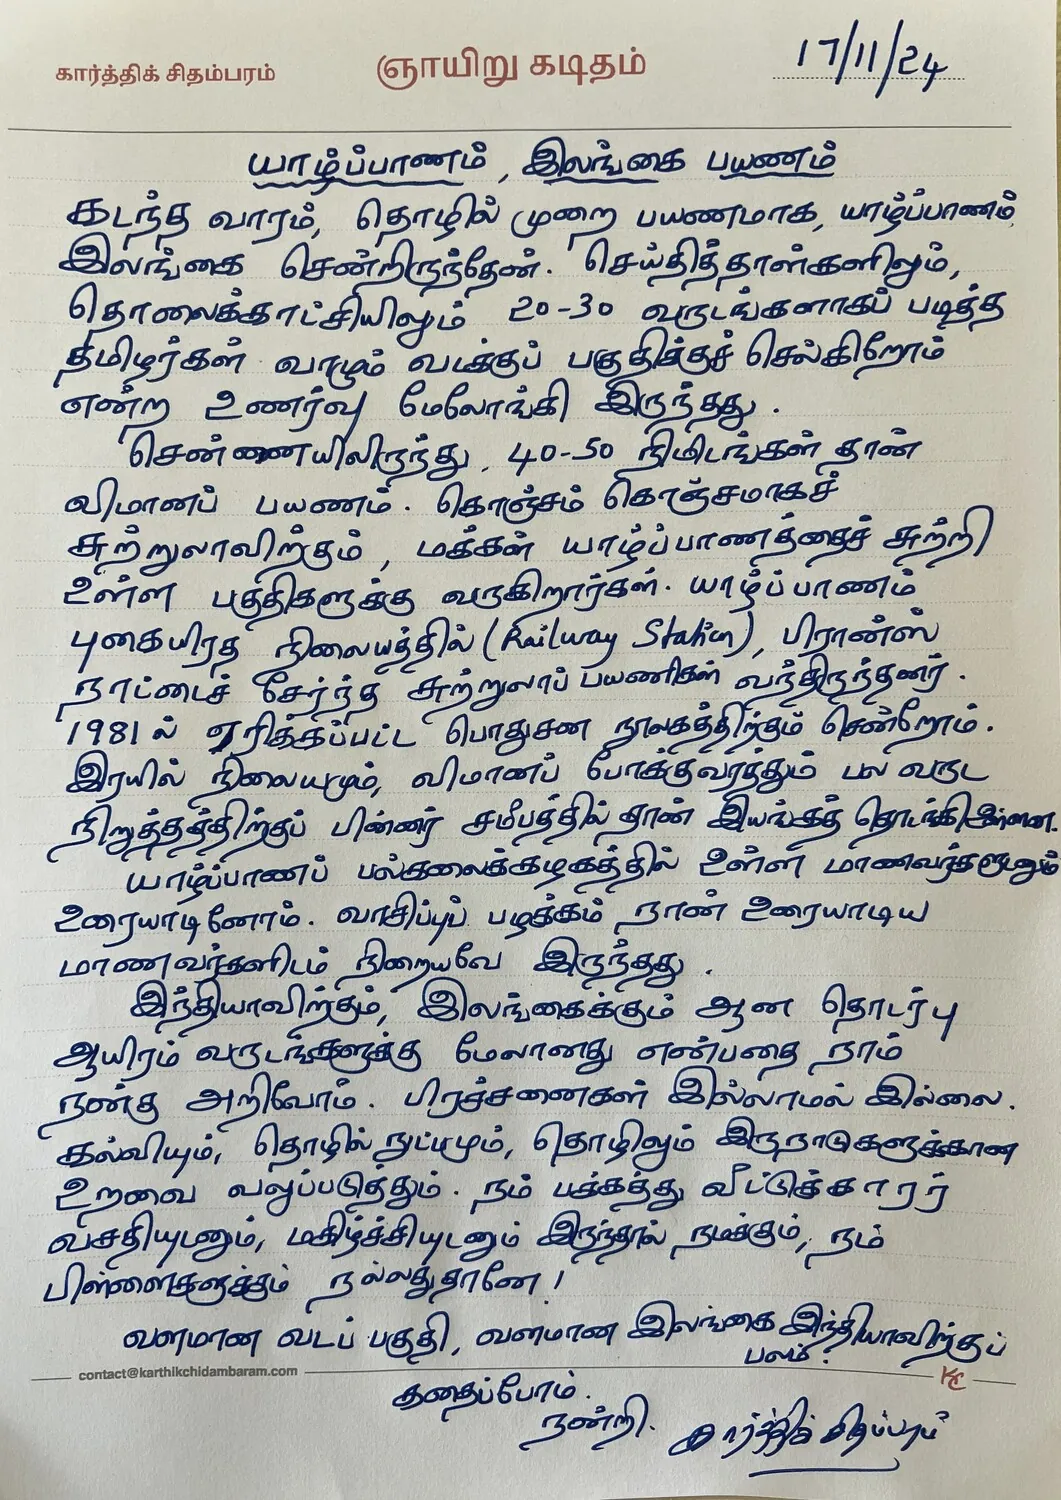 கார்த்திக் சிதம்பரம்
ஞாயிறு கடிதம்
17/11/24
யாழ்ப்பாணம், இலங்கை பயணம்
கடந்த வாரம், தொழில் முறை பயணமாக, யாழ்ப்பாணம்,
இலங்கை சென்றிருந்தேன். செய்தித்தாள்களிலும்,
தொலைக்காட்சியிலும் 20-30 வருடங்களாகப் படித்த
தமிழர்கள் வாழும் வடக்குப் பகுதிக்குச் செல்கிறோம்
என்ற உணர்வு மேலோங்கி இருந்தது.
சென்னையிலிருந்து, 40-50 நிமிடங்கள் தான்
விமானப் பயணம். கொஞ்சம் கொஞ்சமாகச்
சுற்றுலாவிற்கும், மக்கள் யாழ்ப்பாணத்தைச் சுற்றி
உள்ள பகுதிகளுக்கு வருகிறார்கள். யாழ்ப்பாணம்
புகையிரத நிலையத்தில் (Railway Station), பிரான்ஸ்
நாட்டைச் சேர்ந்த சுற்றுலாப் பயணிகள் வந்திருந்தனர்.
1981ல் எரிக்கப்பட்ட பொதுசன நூலகத்திற்கும் சென்றோம்.
இரயில் நிலையமும், விமானப் போக்குவரத்தும் பல வருட
நிறுத்தத்திற்குப் பின்னர் சமீபத்தில் தான் இயங்கத் தொடங்கி உள்ளன.
யாழ்ப்பாணப் பல்கலைக்கழகத்தில் உள்ள மாணவர்களுடனும்
உரையாடினோம். வாசிப்புப் பழக்கம் நான் உரையாடிய
மாணவர்களிடம் நிறையவே இருந்தது.
இந்தியாவிற்கும், இலங்கைக்கும் ஆன தொடர்பு
ஆயிரம் வருடங்களுக்கு மேலானது என்பதை நாம்
நன்கு அறிவோம். பிரச்சனைகள் இல்லாமல் இல்லை.
கல்வியும், தொழில் நுட்பமும், தொழிலும் இருநாடுகளுக்கான
உறவை வலுப்படுத்தும். நம் பக்கத்து வீட்டுக்காரர்
வசதியுடனும், மகிழ்ச்சியுடனும் இருந்தால் நமக்கும், நம்
பிள்ளைகளுக்கும் நல்லதுதானே!
வளமான வடப் பகுதி, வளமான இலங்கை இந்தியாவிற்குப்
பலம்.
contact@karthikchidambaram.com
KC
கதைப்போம்.
நன்றி. கார்த்திக் சிதம்பரம்